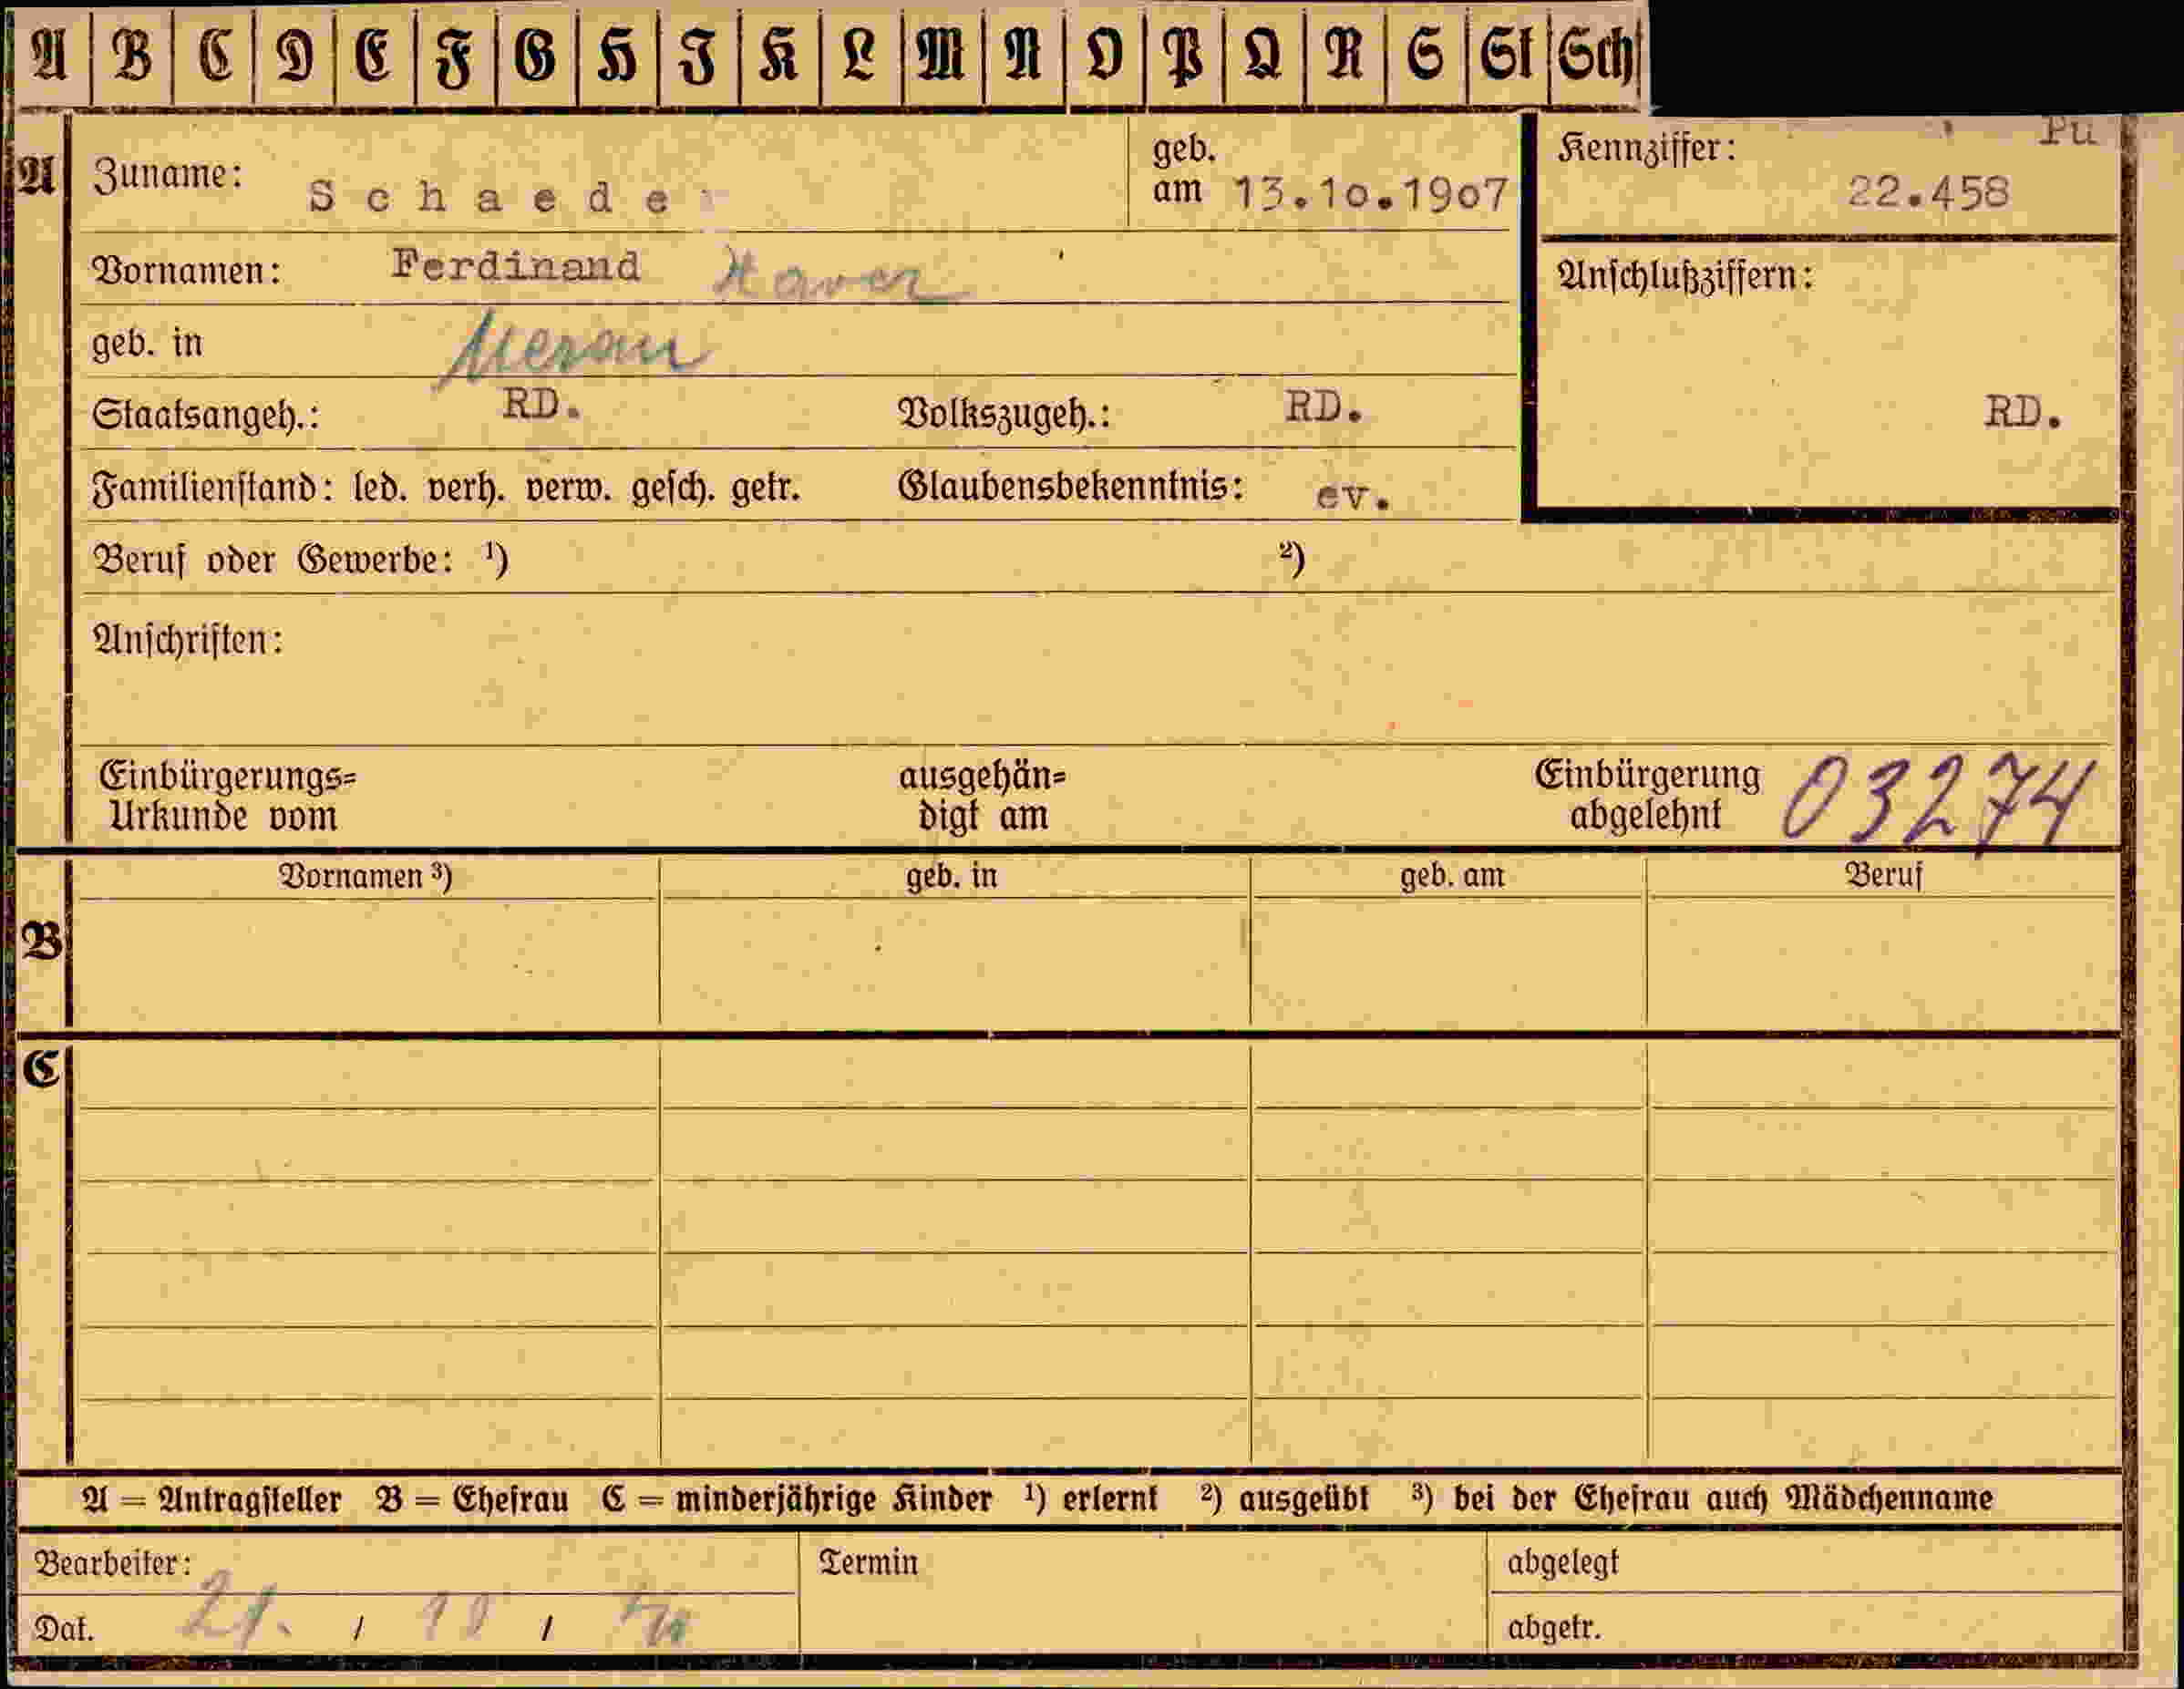 A B C D E F G H I K L M N O P Q R S St Sch
A Zuname: Schaeder geb. am 13.10.1907
Kennziffer: Pu
22.458
Vornamen: Ferdinand Xaver
Anschlußziffern:
geb. in Meran
Staatsangeh.: RD. Volkszugeh.: RD.
RD.
Familienstand: led. verh. verw. gesch. getr. Glaubensbekenntnis: ev.
Beruf oder Gewerbe: ¹) ²)
Anschriften:
Einbürgerungs= ausgehän= Einbürgerung 03274
Urkunde vom digt am abgelehnt
Vornamen ³) geb. in geb. am Beruf
B
C
A = Antragsteller B = Ehefrau C = minderjährige Kinder ¹) erlernt ²) ausgeübt ³) bei der Ehefrau auch Mädchenname
Bearbeiter: Termin abgelegt
Dat. 21. / 10 / abgetr.